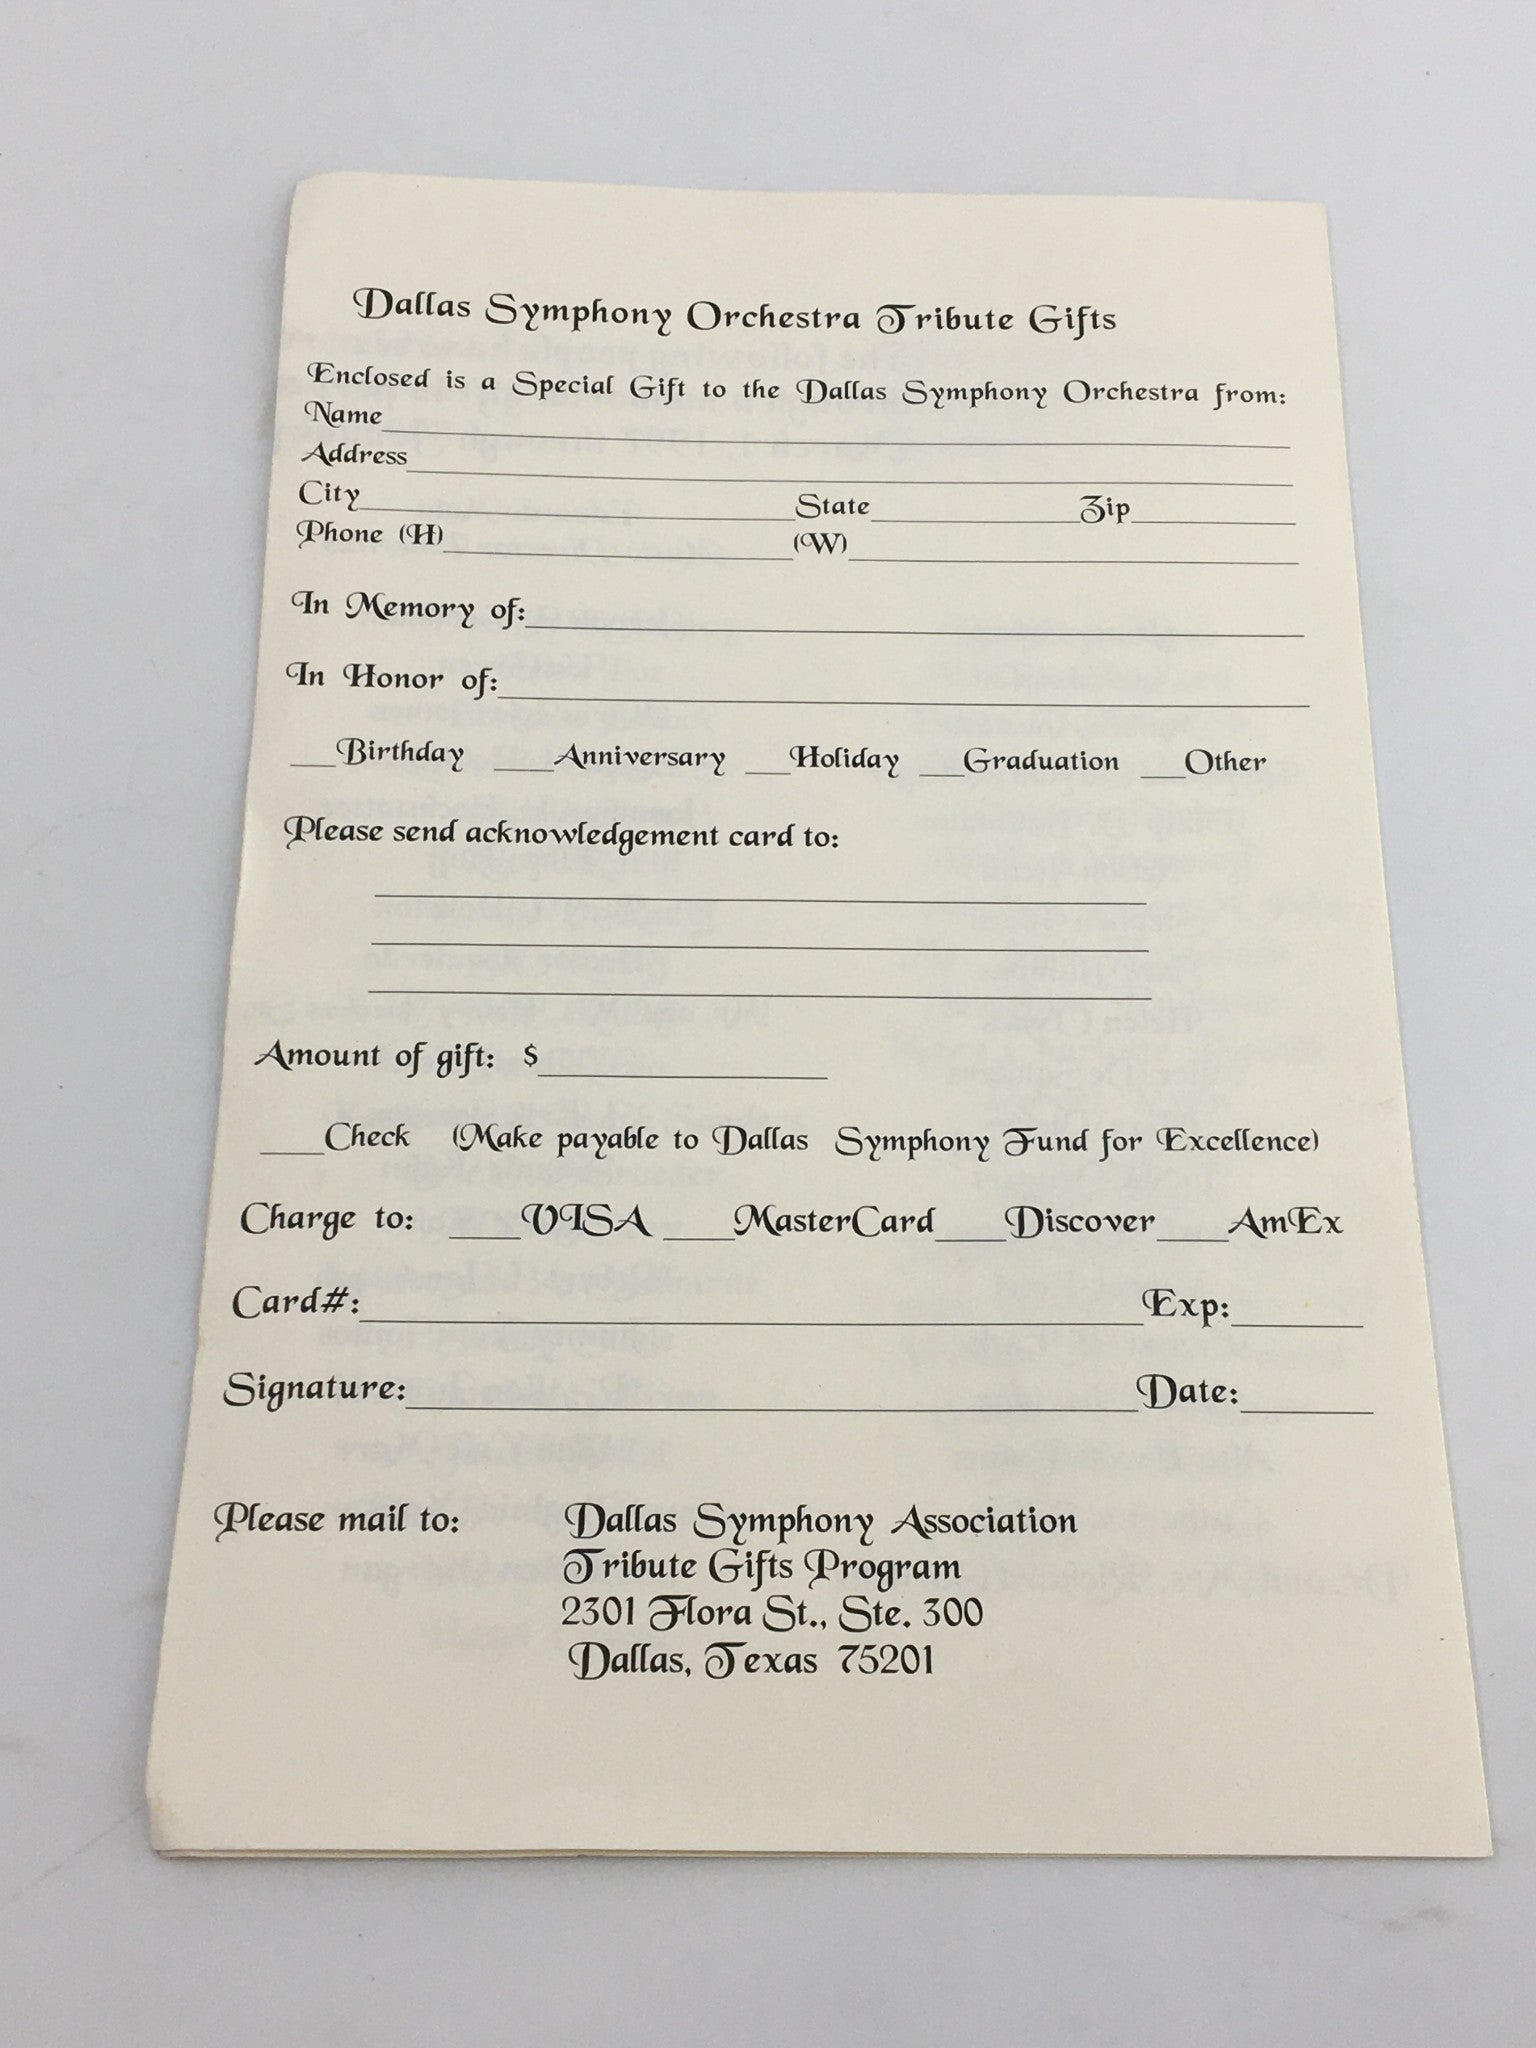 Dallas Symphony Orchestra Tribute Gifts
Enclosed is a Special Gift to the Dallas Symphony Orchestra from:
Name
Address
City State Zip
Phone (H) (W)
In Memory of:
In Honor of:
___Birthday ___Anniversary ___Holiday ___Graduation ___Other
Please send acknowledgement card to:
Amount of gift: $
___Check (Make payable to Dallas Symphony Fund for Excellence)
Charge to: ___VISA ___MasterCard ___Discover ___AmEx
Card#: Exp:
Signature: Date:
Please mail to: Dallas Symphony Association
Tribute Gifts Program
2301 Flora St., Ste. 300
Dallas, Texas 75201